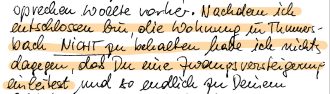 sprechen wollte vorher. Nachdem ich
entschlossen bin die Wohnung in Thumers-
bach NICHT zu behalten habe ich nichts
dagegen, das Du eine Zwangsversteigerung
einleitest und so endlich zu Deinem